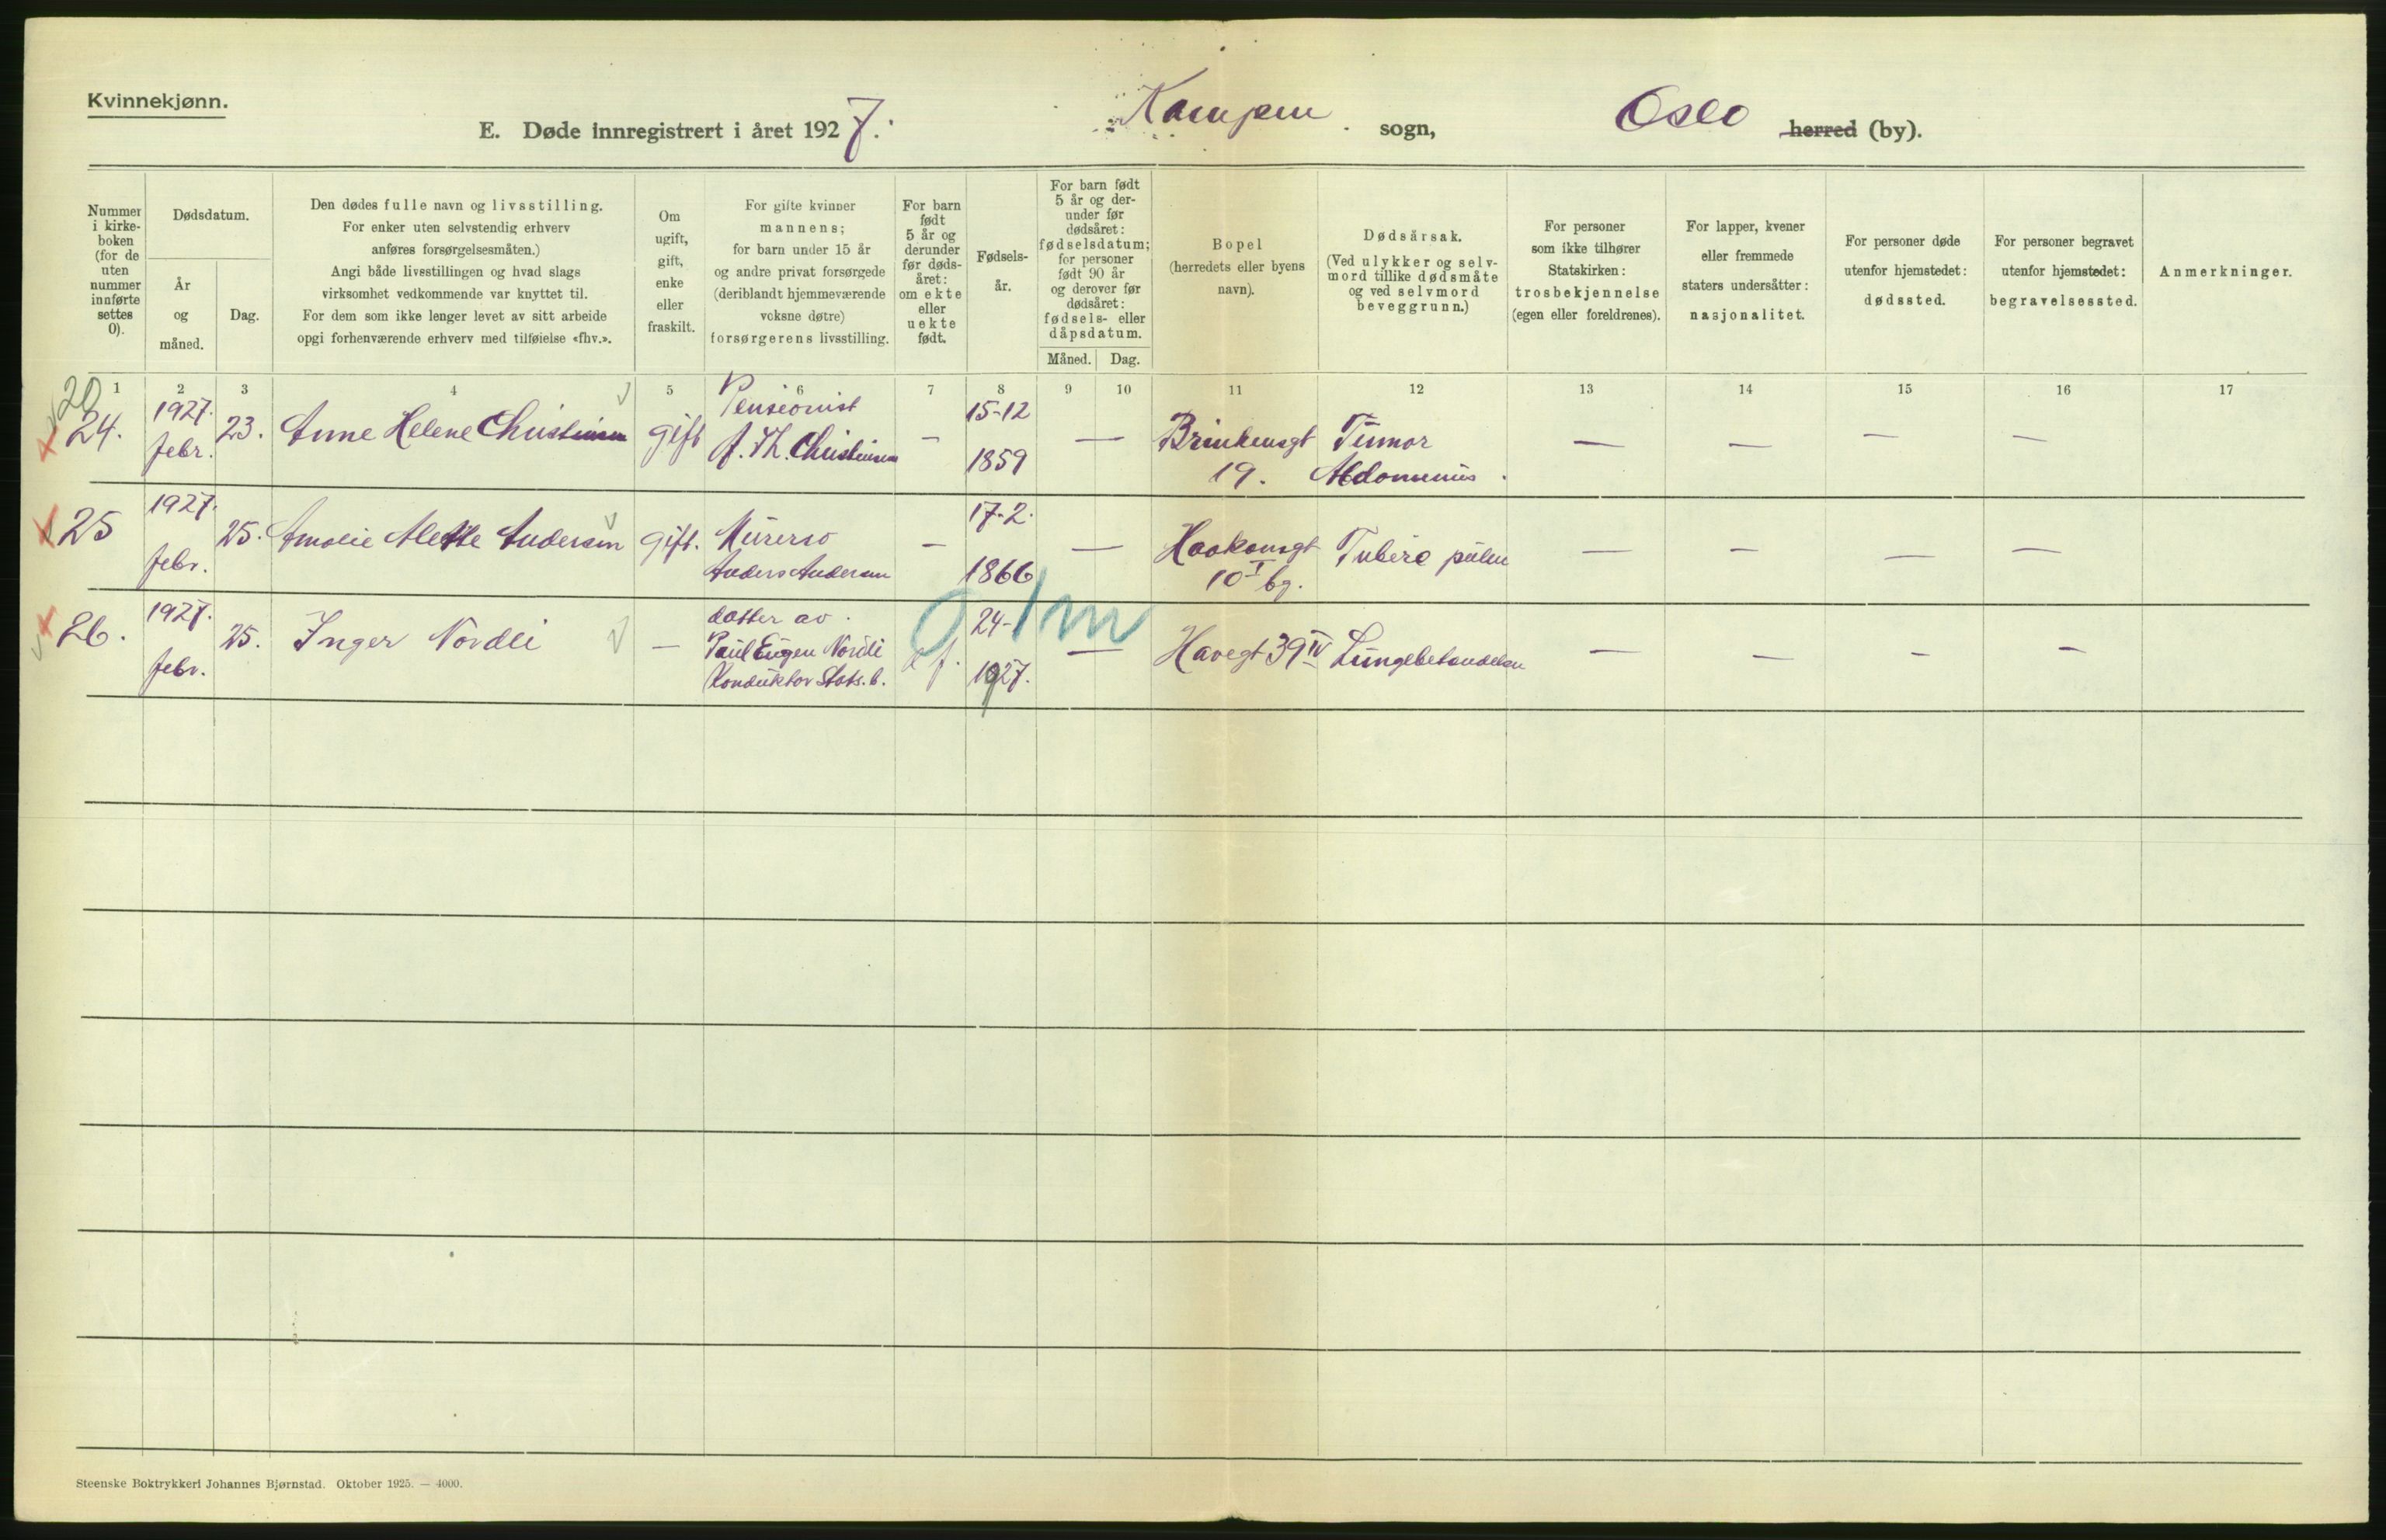 Kvinnekjønn.
E. Døde innregistrert i året 1927. Kampen sogn, Oslo herred (by).
Nummer i kirkeboken (for de uten nummer innførte settes 0).
Dødsdatum.
År og måned.
Dag.
Den dødes fulle navn og livsstilling.
For enker uten selvstendig erhverv
anføres forsørgelsesmåten.)
Angi både livsstillingen og hvad slags
virksomhet vedkommende var knyttet til.
For dem som ikke lenger levet av sitt arbeide
opgi forhenværende erhverv med tilføielse «fhv.».
Om
ugift,
gift,
enke
eller
fraskilt.
For gifte kvinner
mannens;
for barn under 15 år
og andre privat forsørgede
(deriblandt hjemmeværende
voksne døtre)
forsørgerens livsstilling.
For barn
født
5 år og
derunder
før døds-
året:
om ekte
eller
uekte
født.
Fødsels-
år.
For barn født
5 år og der-
under før
dødsåret:
fødselsdatum;
for personer
født 90 år
og derover før
dødsåret:
fødsels- eller
dåpsdatum.
Måned. Dag.
Bopel
(herredets eller byens
navn).
Dødsårsak.
(Ved ulykker og selv-
mord tillike dødsmåte
og ved selvmord
beveggrunn.)
For personer
som ikke tilhører
Statskirken:
trosbekjennelse
(egen eller foreldrenes).
For lapper, kvener
eller fremmede
staters undersåtter:
nasjonalitet.
For personer døde
utenfor hjemstedet:
dødssted.
For personer begravet
utenfor hjemstedet:
begravelsessted.
Anmerkninger.
1 2 3 4 5 6 7 8 9 10 11 12 13 14 15 16 17
20
24. 1927. febr. 23. Anne Helene Christensen gift Pensionist A. Th. Christensen — 15-12 1859 — Brinkensgt 19. Tumor Abdominis. — — — —
25 1927. febr. 25. Amalie Alette Andersen gift. Murersv Anders Andersen — 17-2. 1866 — Haakonsgt 10 I bg. Tuberc pulm — — — —
26. 1927. febr. 25. Inger Nordli — datter av Paul Eugen Nordli Konduktør Stats.b. 24- 1927. 0 1m — Havegt 39 IV Lungebetændelse — — — —
Steenske Boktrykkeri Johannes Bjørnstad. Oktober 1925. — 4000.